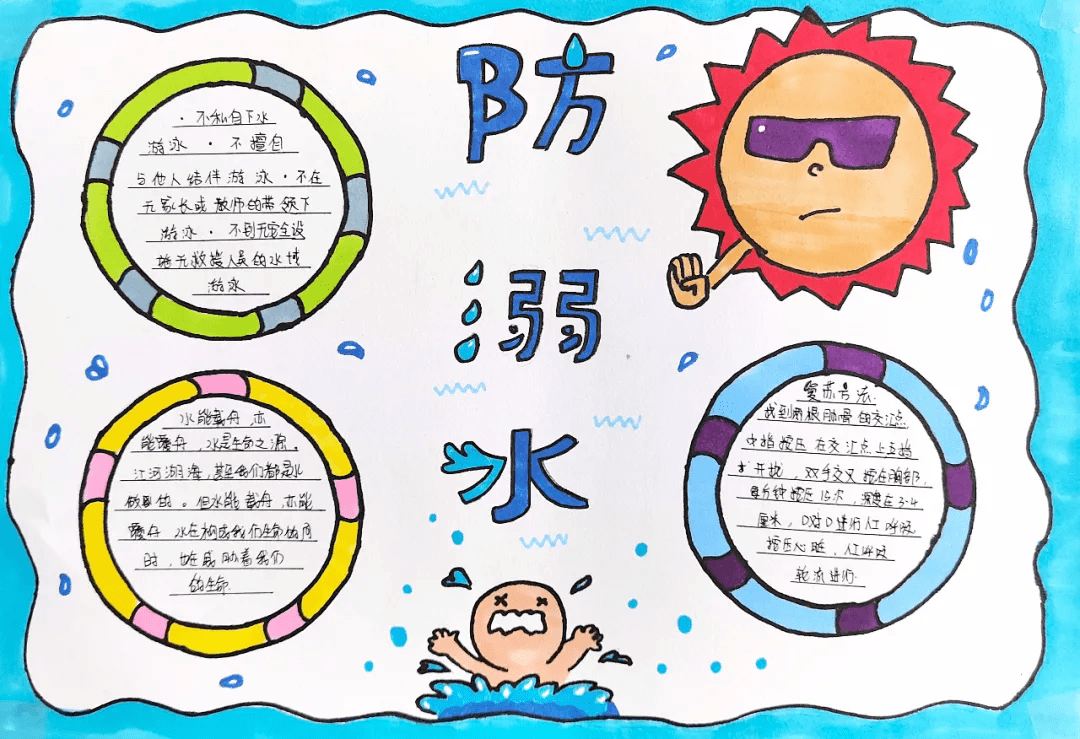 防
溺
水
· 不私自下水
游泳 · 不擅自
与他人结伴游泳 · 不在
无家长或教师的带领下
游泳 · 不到无安全设
施无救援人员的水域
游泳
水能载舟,亦
能覆舟,水是生命之源。
江河湖海,甚至我们都是水
做的。但水能载舟,亦能
覆舟 水在构成我们生命的同
时,也在威胁着我们
的生命.
复苏方法.
找到两根肋骨的交汇点
中指按压在交汇点上五指
扩开扰,双手交叉按在胸部,
每分钟按压15次,深度在3-4
厘米,口对口进行人工呼吸
按压心脏,人工呼吸
轮流进行.